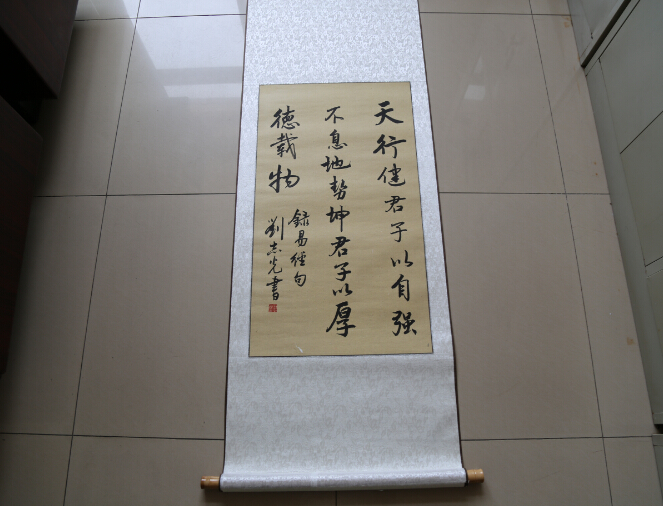 天行健君子以自强
不息地势坤君子以厚
德载物
録易經句
劉志光書